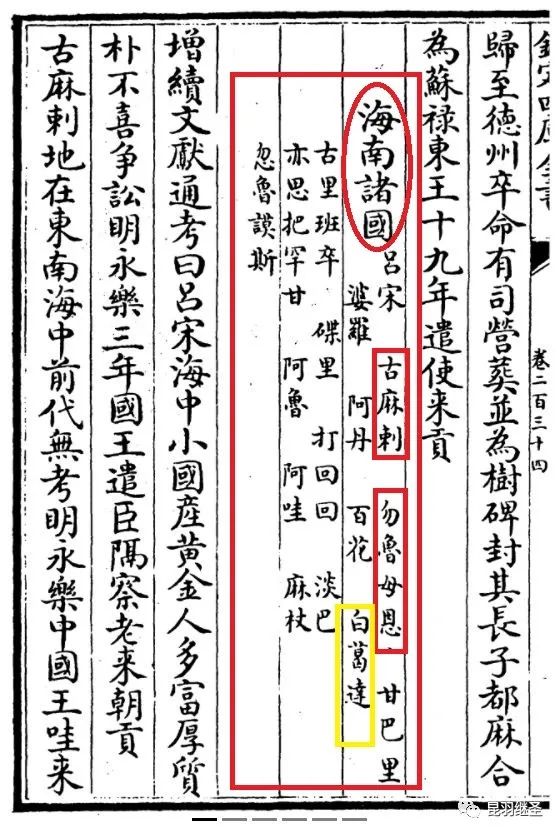 歸至德州卒命有司營葬並為樹碑封其長子都麻合
為蘇祿東王十九年遣使来貢
海南諸國
呂宋 古麻剌 勿魯母恩 甘巴里
婆羅 阿丹 百花 白葛達
古里班卒 磼里 打回回 淡巴
亦思把罕甘 阿魯 阿哇 麻杖
忽魯謨斯
增續文獻通考曰呂宋海中小國産黄金人多富厚質
朴不喜争訟明永樂三年國王遣臣隔察老来朝貢
古麻剌地在東南海中前代無考明永樂中國王哇来
卷二百三十四
昆羽继圣